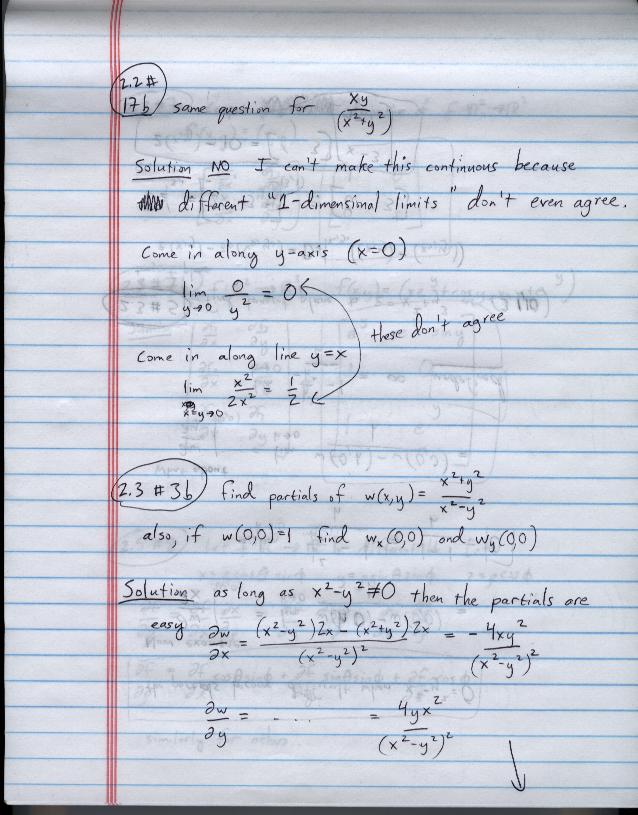 2.2 #
17b same question for xy/(x²+y²)
Solution NO I can't make this continuous because
different "1-dimensional limits" don't even agree.
Come in along y-axis (x=0)
lim y→0 0/y² = 0
these don't agree
Come in along line y=x
lim x=y→0 x²/2x² = 1/2
2.3 #3b find partials of w(x,y) = x²+y²/x²-y²
also, if w(0,0)=1 find wx(0,0) and wy(0,0)
Solution as long as x²-y²≠0 then the partials are
easy ∂w/∂x = (x²-y²)2x - (x²+y²)2x/(x²-y²)² = - 4xy²/(x²-y²)²
∂w/∂y = .... = 4yx²/(x²-y²)²